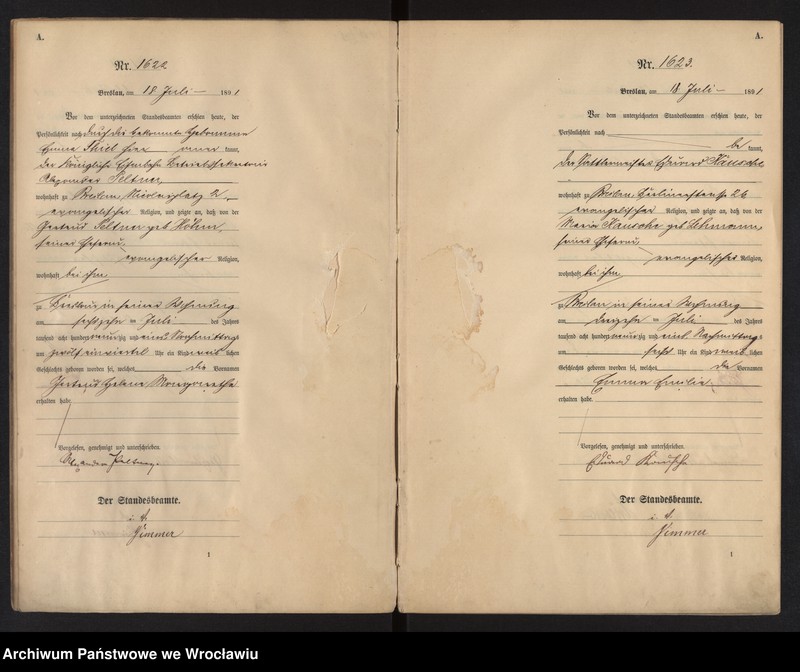 A.
Nr. 1622
Breslau, am 18 Juli 1891
Vor dem unterzeichneten Standesbeamten erschien heute, der
Persönlichkeit nach durch die bekannte Hebamme
Emma Thiel hier kannt,
der Königliche Eisenbahn Betriebssekretair
Alexander
wohnhaft zu Breslau, Nicolaiplatz 2,
evangelischer Religion, und zeigte an, daß von der
Gertrud geb. Höhm,
seiner Ehefrau,
evangelischer Religion,
wohnhaft bei ihm,
zu Breslau in seiner Wohnung
am sechszehn ten Juli des Jahres
tausend acht hundert neunzig und eins Nachmittags
um zwölf einviertel Uhr ein Kind weiblichen
Geschlechts geboren worden sei, welches die Vornamen
Gertrud Helene Margarethe
erhalten habe.
Vorgelesen, genehmigt und unterschrieben.
Alexander
Der Standesbeamte.
i. V.
Zimmer
1
A.
Nr. 1623.
Breslau, am 18. Juli 1891
Vor dem unterzeichneten Standesbeamten erschien heute, der
Persönlichkeit nach
be kannt,
der Sattlermeister Eduard
wohnhaft zu Breslau, Berlinerstraße 26
evangelischer Religion, und zeigte an, daß von der
Maria geb. Lehmann,
seiner Ehefrau,
evangelischer Religion,
wohnhaft bei ihm,
zu Breslau in seiner Wohnung
am dreizehn ten Juli des Jahres
tausend acht hundert neunzig und eins Nachmittags
um sechs Uhr ein Kind weiblichen
Geschlechts geboren worden sei, welches die Vornamen
Emma Emilie
erhalten habe.
Vorgelesen, genehmigt und unterschrieben.
Eduard
Der Standesbeamte.
i. V.
Zimmer
1
Archiwum Państwowe we Wrocławiu